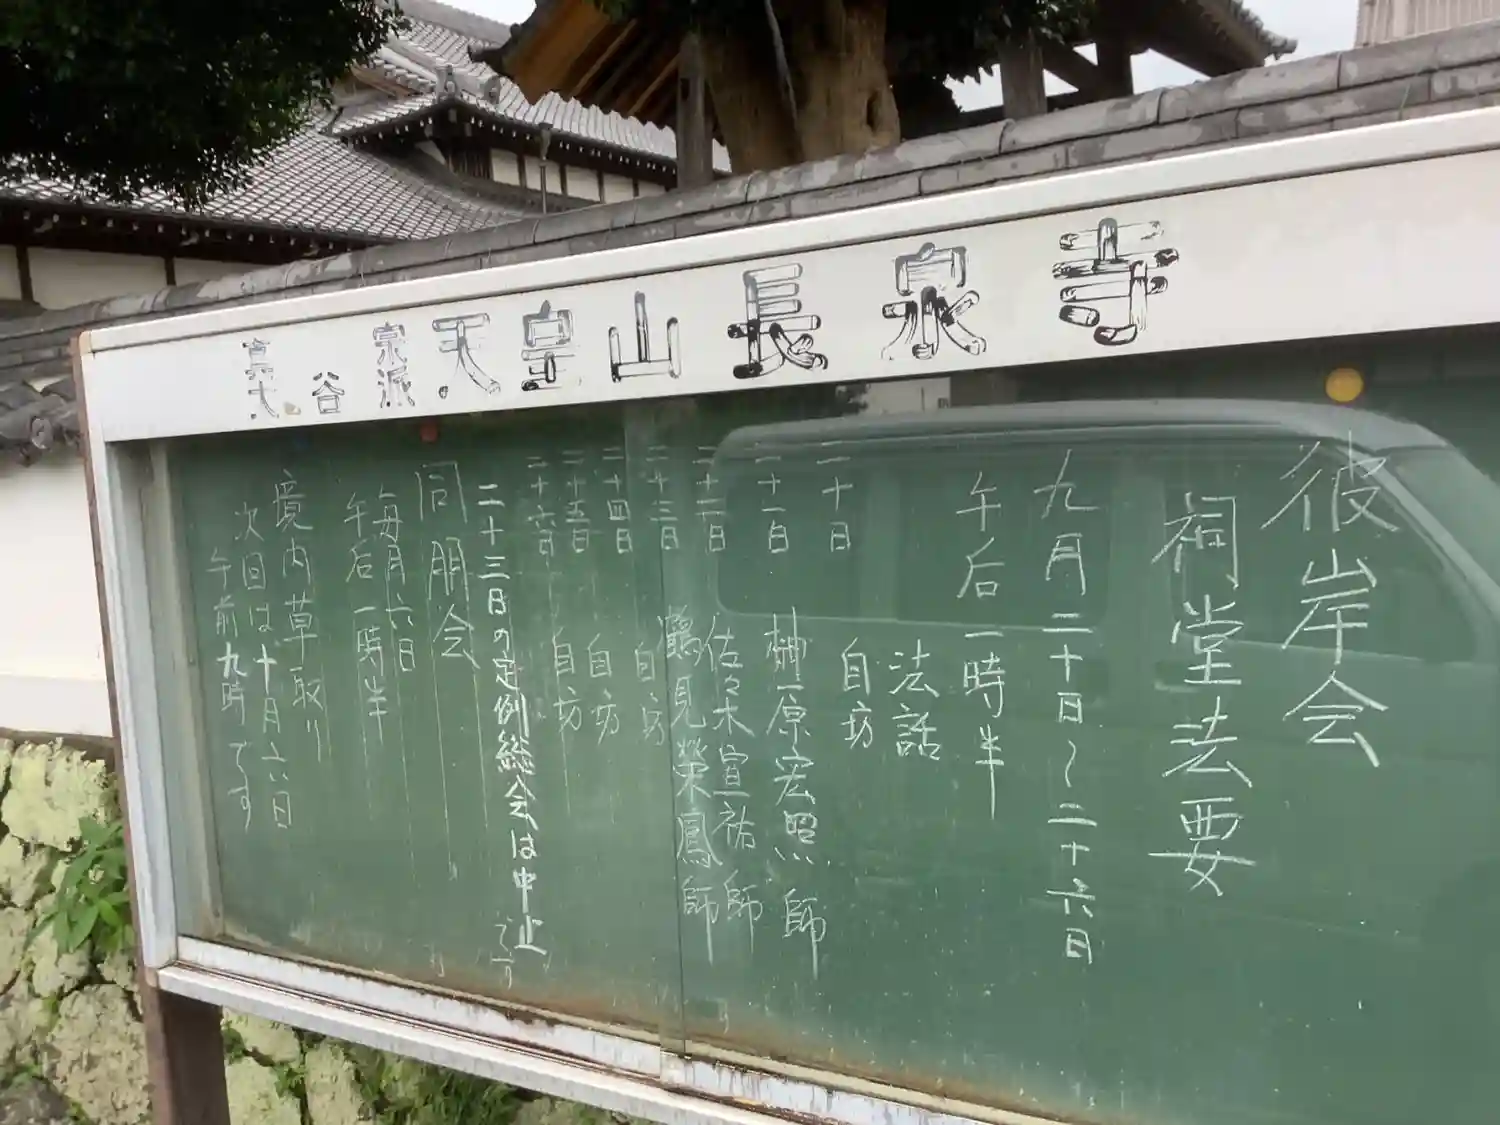 真宗大谷派 天皇山 長泉寺
彼岸会
祠堂法要
九月二十日~二十六日
午后一時半
法話
二十日 自坊
二十一日 榊原宏照師
二十二日 佐々木宣祐師
二十三日 鶴見榮鳳師
二十四日 自坊
二十五日 自坊
二十六日 自坊
二十三日の定例総会は中止です
同朋会
毎月六日
午后一時半
境内草取り
次回は十月六日
午前九時です